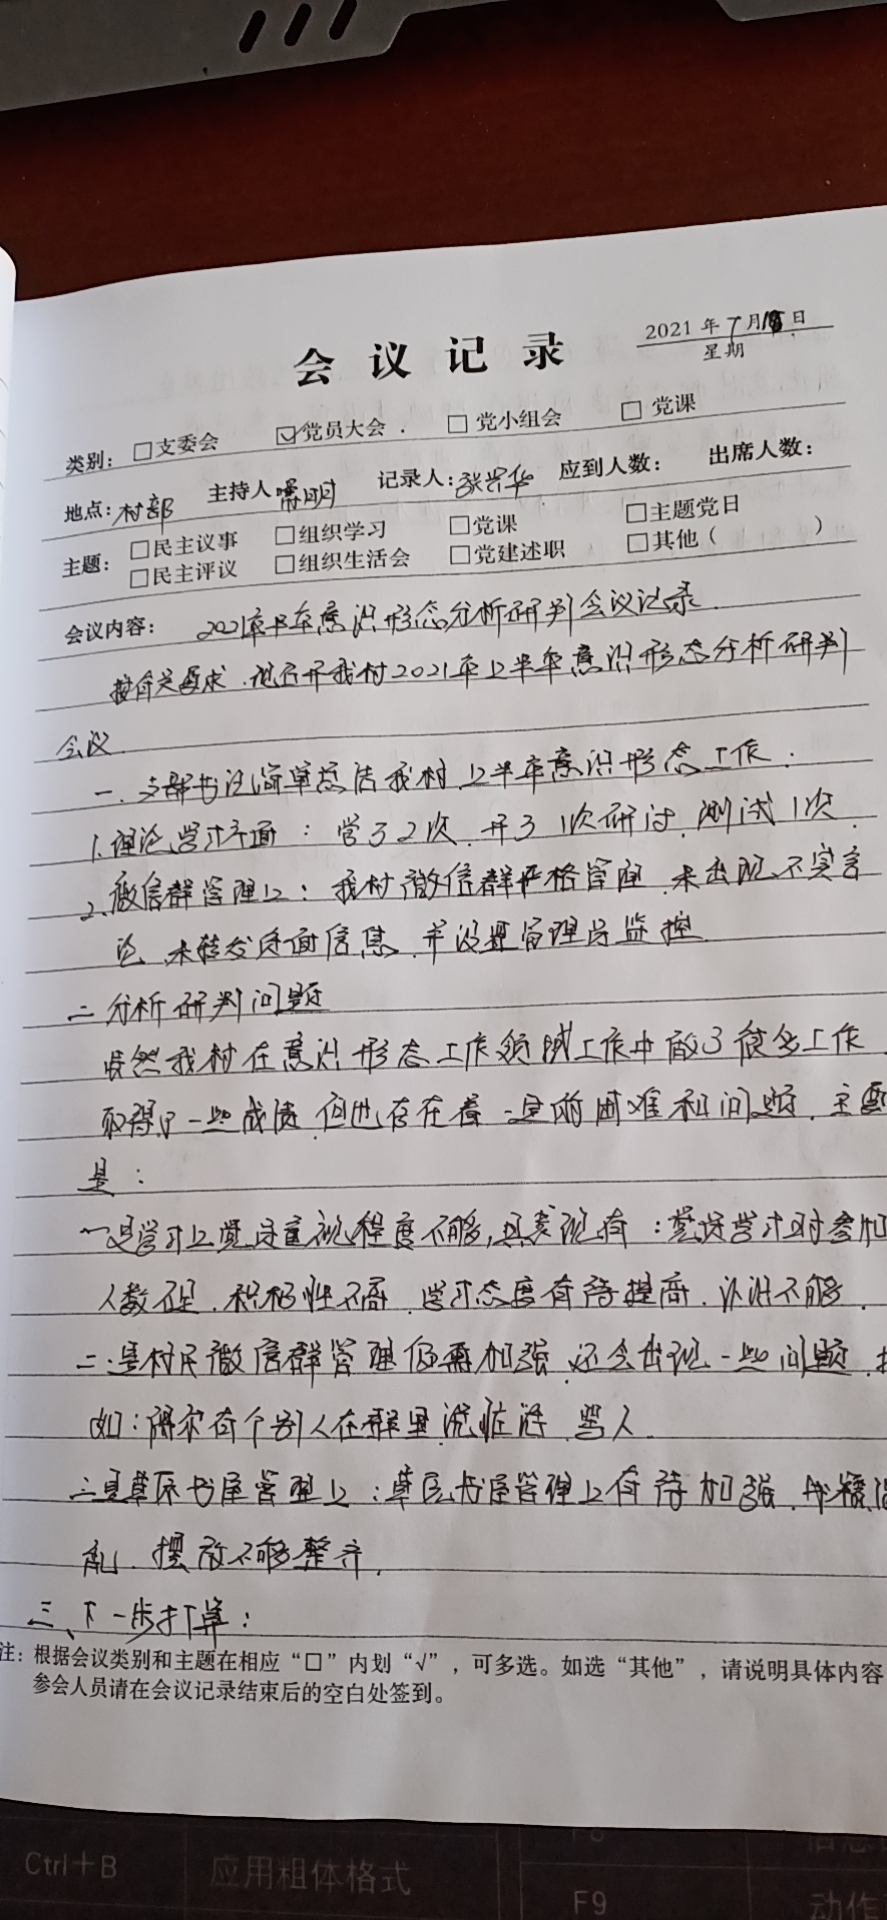 会议记录
2021年7月18日
星期
类别：□支委会 ☑党员大会 □党小组会 □党课
地点：村部 主持人 明 记录人：张兴华 应到人数： 出席人数：
主题：□民主议事 □组织学习 □党课 □主题党日
□民主评议 □组织生活会 □党建述职 □其他（ ）
会议内容： 2021年上半年意识形态分析研判会议记录
按有关要求，现召开我村2021年上半年意识形态分析研判
会议
一、支部书记简单总结我村上半年意识形态工作：
1.理论学习方面：学了2次，开了1次研讨，测试1次
2.微信群管理上：我村微信群严格管理，未出现不实言
论，未转发负面信息，并设置管理员监控
二分析研判问题
虽然我村在意识形态工作领域工作中做了很多工作，
取得了一些成绩，但也存在着一定的困难和问题，主要
是：
一是学习上党员重视程度不够，具表现有：党员学习时参加
人数不足，积极性不高，学习态度有待提高，认识不够，
二是村民微信群管理仍需加强，还会出现一些问题，
如：偶尔有个别人在群里说脏话，骂人
三是草原书屋管理上：草原书屋管理上有待加强，书籍
乱，摆放不够整齐，
三、下一步打算：
注：根据会议类别和主题在相应“□”内划“√”，可多选。如选“其他”，请说明具体内容
参会人员请在会议记录结束后的空白处签到。
Ctrl+B 应用粗体格式
F9 动作